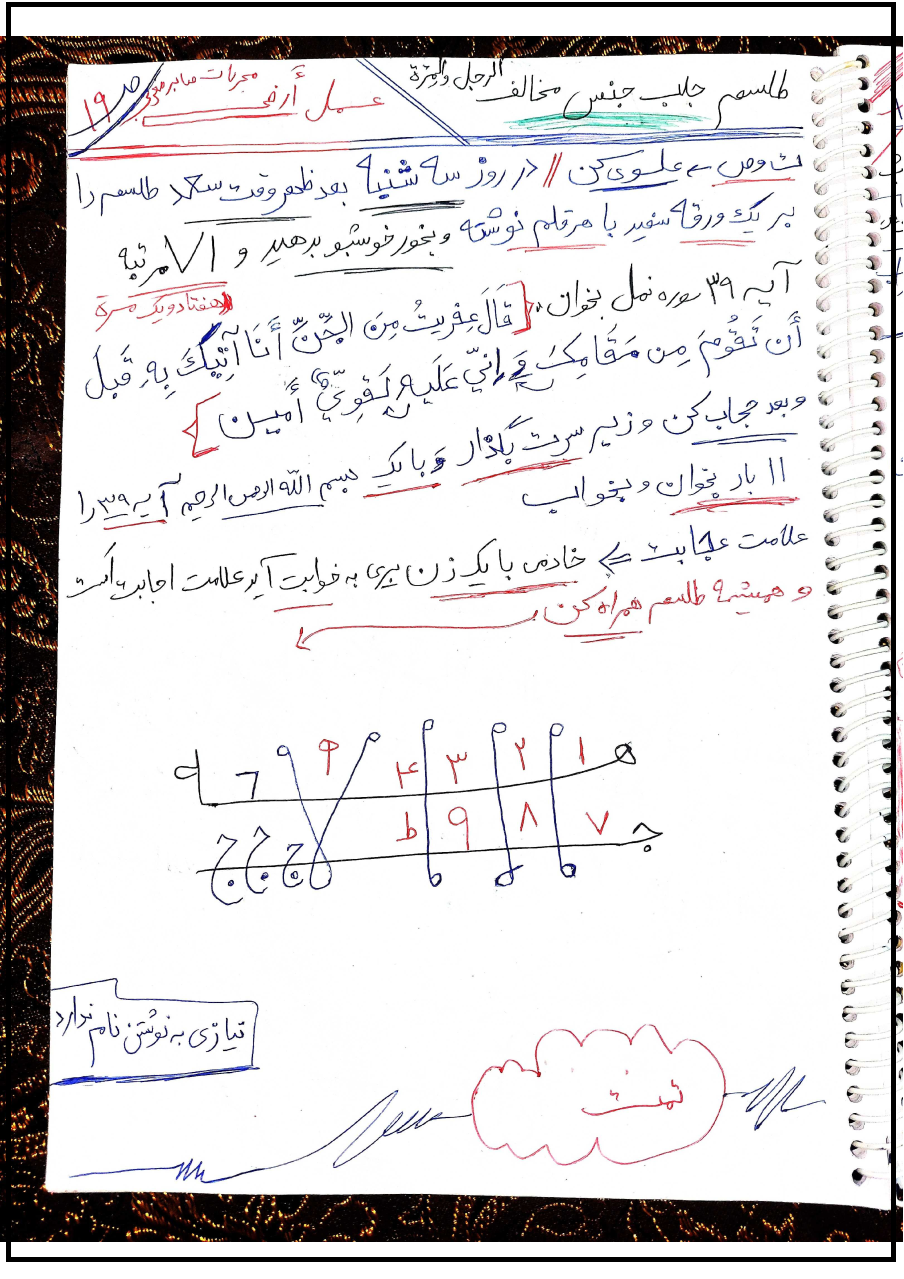 طلسم جلب جنس مخالف الرجل والمرة
عمل أرضی
مجربات صابر
ص ۱۹
علسوی کن // در روز سه شنبه بعد ظهر وقت سعد طلسم را
بر یک ورقه سفید با هر قلم نوشته و بخور خوشبو بدهید و ۷۱ مرتبه
هفتاد و یک مرة
آیه ۳۹ سوره نمل بخوان {قَالَ عِفریتُ مِنَ الجّنِّ أَنَا آتیِکَ بِهِ قَبلَ
أَن تَقُومَ مِن مَقَامِکَ وَ اِنّي عَلَیهِ لَقَوِيّ أَمین}
و بعد حجاب کن و زیر سرت بگذار و با یک بسم الله الرحمن الرحیم آیه ۳۹ را
۱۱ بار بخوان و بخواب
علامت عجابت خادم با یک زن پری به خوابت آید علامت اجابت است
و همیشه طلسم همراه کن
۱ ۲ ۳ ۴
۷ ۸ ۹ ط
ج ج ج
نیازی به نوشتن نام ندارد
تمت